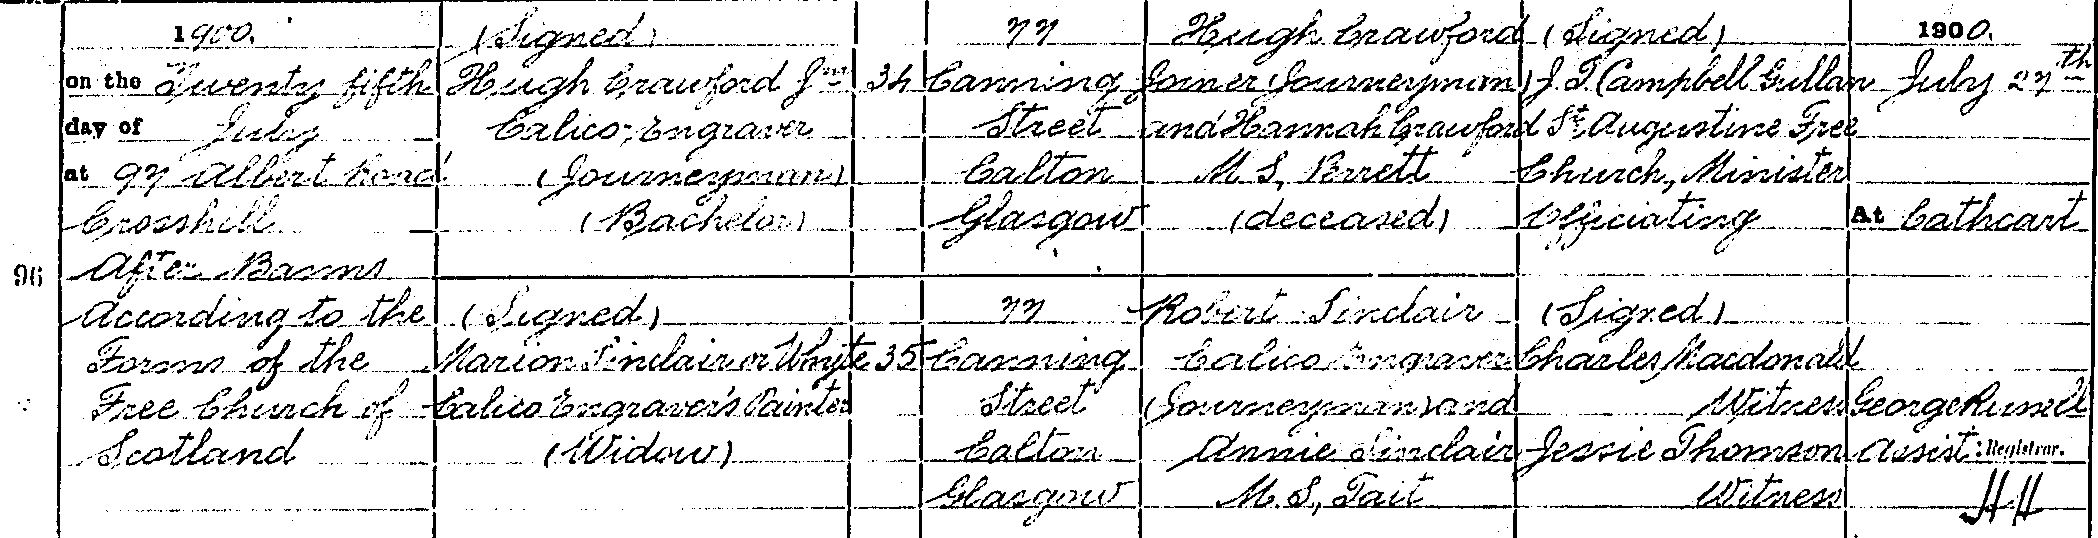 96
1900.
on the Twenty fifth
day of July
at 97 Albert Road
Crosshill
After Banns
According to the
Forms of the
Free Church of
Scotland
(Signed)
Hugh Crawford Jnr
Calico Engraver
(Journeyman)
(Bachelor)
(Signed)
Marion Sinclair or Whyte
Calico Engraver's Painter
(Widow)
34
35
77
Canning
Street
Calton
Glasgow
77
Canning
Street
Calton
Glasgow
Hugh Crawford
Joiner (Journeyman)
and Hannah Crawford
M.S, Perrett
(deceased)
Robert Sinclair
Calico Engraver
(Journeyman) and
Annie Sinclair
M.S, Tait
(Signed)
J. T. Campbell Gullan
St Augustine Free
Church, Minister
Officiating
(Signed)
Charles Macdonald
Witness
Jessie Thomson
Witness
1900.
July 27th
At Cathcart
George Russell
Assist: Registrar.
HH